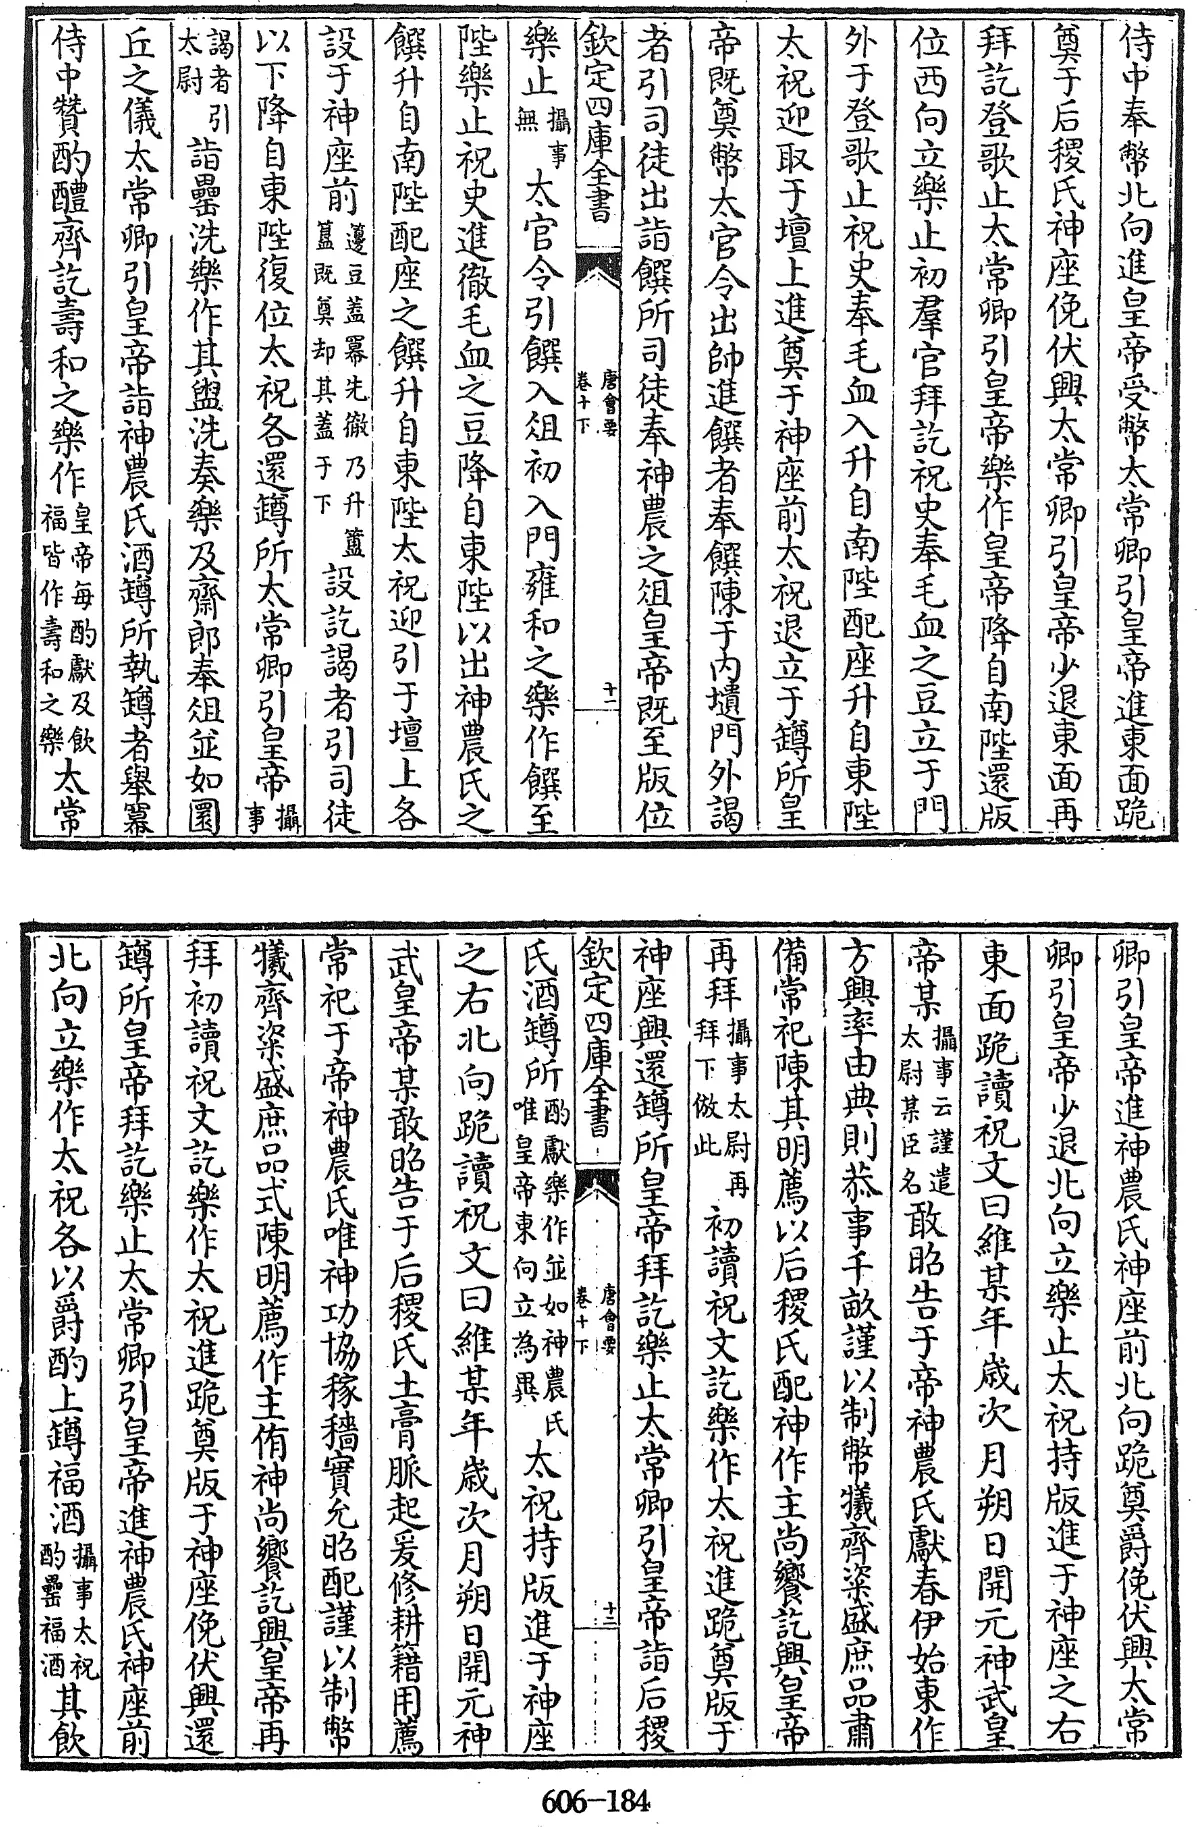 侍中奉幣北向進皇帝受幣太常卿引皇帝進東面跪
奠于后稷氏神座俛伏興太常卿引皇帝少退東面再
拜訖登歌止太常卿引皇帝樂作皇帝降自南陛還版
位西向立樂止初羣官拜訖祝史奉毛血之豆立于門
外于登歌止祝史奉毛血入升自南陛配座升自東陛
太祝迎取于壇上進奠于神座前太祝退立于罇所皇
帝既奠幣太官令出帥進饌者奉饌陳于内壝門外謁
者引司徒出詣饌所司徒奉神農之俎皇帝既至版位
欽定四庫全書
唐會要
卷十下
十一
樂止攝事無太官令引饌入俎初入門雍和之樂作饌至
陛樂止祝史進徹毛血之豆降自東陛以出神農氏之
饌升自南陛配座之饌升自東陛太祝迎引于壇上各
設于神座前籩豆蓋冪先徹乃升簠簋既奠却其蓋于下設訖謁者引司徒
以下降自東陛復位太祝各還罇所太常卿引皇帝攝事
謁者引太尉詣罍洗樂作其盥洗奏樂及齋郎奉俎並如圜
丘之儀太常卿引皇帝詣神農氏酒罇所執罇者舉冪
侍中贊酌醴齊訖壽和之樂作皇帝每酌獻及飲福皆作壽和之樂太常
卿引皇帝進神農氏神座前北向跪奠爵俛伏興太常
卿引皇帝少退北向立樂止太祝持版進于神座之右
東面跪讀祝文曰維某年歲次月朔日開元神武皇
帝某攝事云謹遣太尉某臣名敢昭告于帝神農氏獻春伊始東作
方興率由典則恭事千畝謹以制幣犧齊粢盛庶品肅
備常祀陳其明薦以后稷氏配神作主尚饗訖興皇帝
再拜攝事太尉再拜下倣此初讀祝文訖樂作太祝進跪奠版于
神座興還罇所皇帝拜訖樂止太常卿引皇帝詣后稷
欽定四庫全書
唐會要
卷十下
十二
氏酒罇所酌獻樂作並如神農氏唯皇帝東向立為異太祝持版進于神座
之右北向跪讀祝文曰維某年歲次月朔日開元神
武皇帝某敢昭告于后稷氏土膏脈起爰修耕籍用薦
常祀于帝神農氏唯神功協稼穡實允昭配謹以制幣
犧齊粢盛庶品式陳明薦作主侑神尚饗訖興皇帝再
拜初讀祝文訖樂作太祝進跪奠版于神座俛伏興還
罇所皇帝拜訖樂止太常卿引皇帝進神農氏神座前
北向立樂作太祝各以爵酌上罇福酒攝事太祝酌罍福酒其飲
606-184